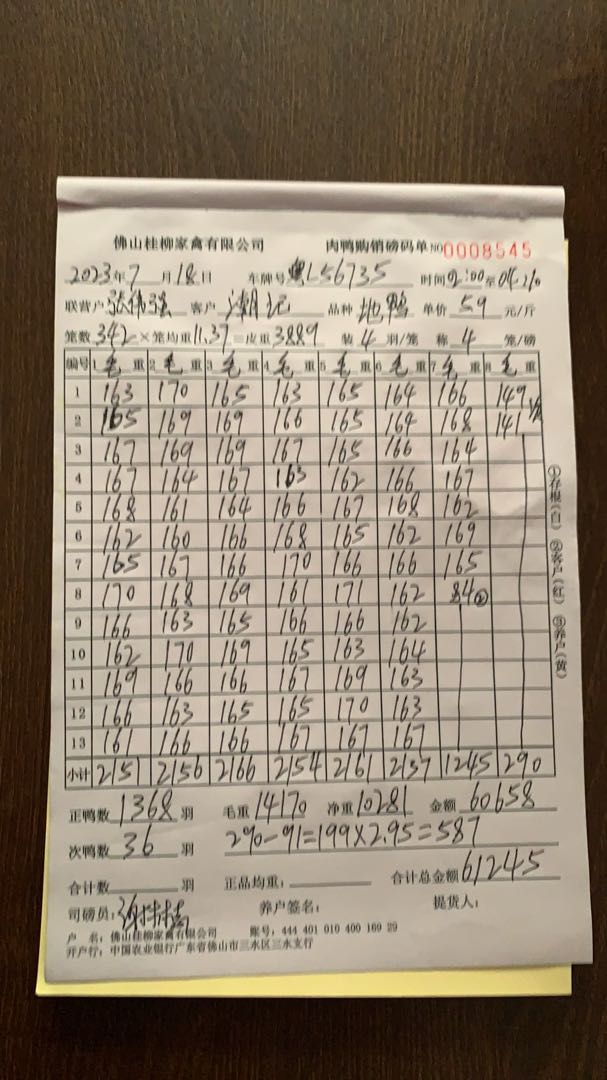 佛山桂柳家禽有限公司 肉鸭购销磅码单 NO 0008545
2023年7月18日 车牌号 粤L56735 时间 02:00至04:20
联营户 张伟强 客户 潮记 品种 地鸭 单价 5.9 元/斤
笼数 342 × 笼均重 11.37 = 皮重 3889 装 4 羽/笼 称 4 笼/磅
编号 1 毛重 2 毛重 3 毛重 4 毛重 5 毛重 6 毛重 7 毛重 8 毛重
1 163 170 165 163 165 164 166 149
2 165 169 169 166 165 164 168 141
3 167 169 169 167 165 166 164
4 167 164 167 163 162 166 167
5 168 161 164 166 167 168 162
6 162 160 166 168 165 162 169
7 165 167 166 170 166 166 165
8 170 168 169 161 171 162 84②
9 166 163 165 166 166 162
10 162 170 169 165 163 164
11 169 166 166 167 169 163
12 166 163 165 165 170 163
13 161 166 166 167 167 167
小计 2151 2156 2166 2154 2161 2137 1245 290
正鸭数 1368 羽 毛重 14170 净重 10281 金额 60658
次鸭数 36 羽 290-91=199×2.95=587
合计数 羽 正品均重: 合计总金额 61245
司磅员: 养户签名: 提货人:
户 名: 佛山桂柳家禽有限公司 账号: 444 401 010 400 169 29
开户行: 中国农业银行广东省佛山市三水区三水支行
①存根(白) ②客户(红) ③养户(黄)